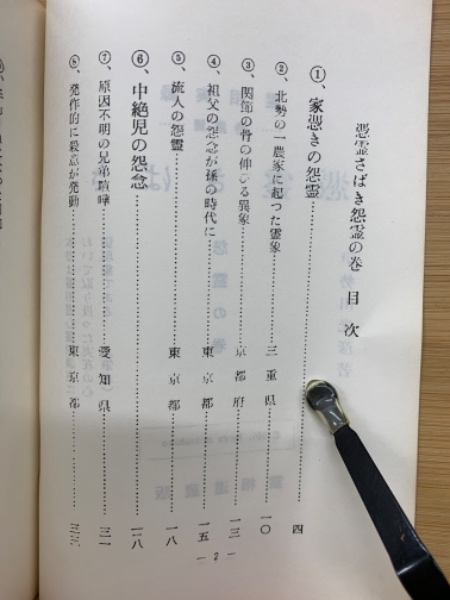 憑霊さばき怨霊の巻 目次
①、家憑きの怨霊……四
②、北勢の一農家に起った霊象……三重県……一〇
③、関節の骨の伸びる異象……京都府……一三
④、祖父の怨念が孫の時代に……東京都……一五
⑤、流人の怨霊……東京都……一八
⑥、中絶児の怨念……二八
⑦、原因不明の兄弟喧嘩……愛知県……三一
⑧、発作的に殺意が発動……東京都……三三
— 2 —